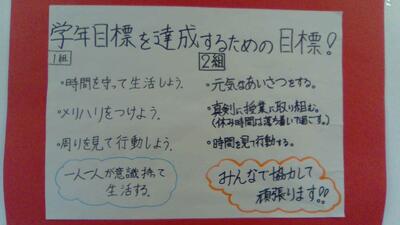 学年目標を達成するための目標!
1組
・時間を守って生活しよう。
・メリハリをつけよう。
・周りを見て行動しよう。
一人一人が意識持って
生活する。
2組
・元気なあいさつをする。
・真剣に授業に取り組む。
(休み時間は落ち着いて過ごす。)
・時間を見て行動する。
みんなで協力して
頑張ります!!